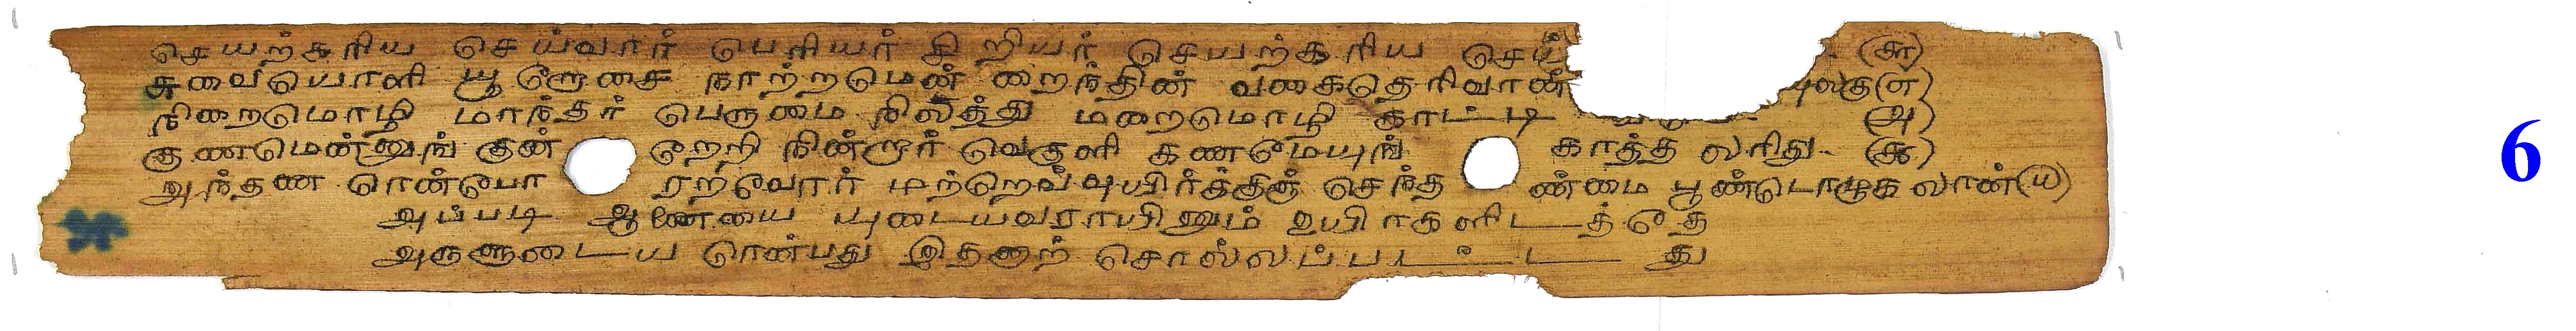 செயற்கரிய செய்வார் பெரியர் சிறியர் செயற்கரிய செய் (௬)
சுவையொளி யூறோசை நாற்றமென் றைந்தின் வகைதெரிவான் யுலகு(௭)
நிறைமொழி மாந்தர் பெருமை நிலத்து மறைமொழி காட்டி (௮)
குணமென்னுங் குன் றேறி நின்றார் வெகுளி கணமேயுங் காத்த லரிது (௯)
அந்தண ரென்போ ரறவோர் மற்றெவ்வுயிர்க்குஞ் செந்த ண்மை பூண்டொழுக லான்(௰)
அப்படி ஆணையை யுடையவராயினும் உயிர்களிடத்தே
அருளுடைய ரென்பது இதனாற் சொல்லப்பட்டது
6